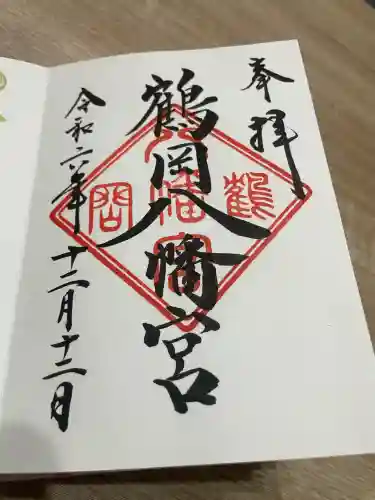 奉拝
鶴岡八幡宮
令和六年十二月十二日
鶴
八幡宮
岡